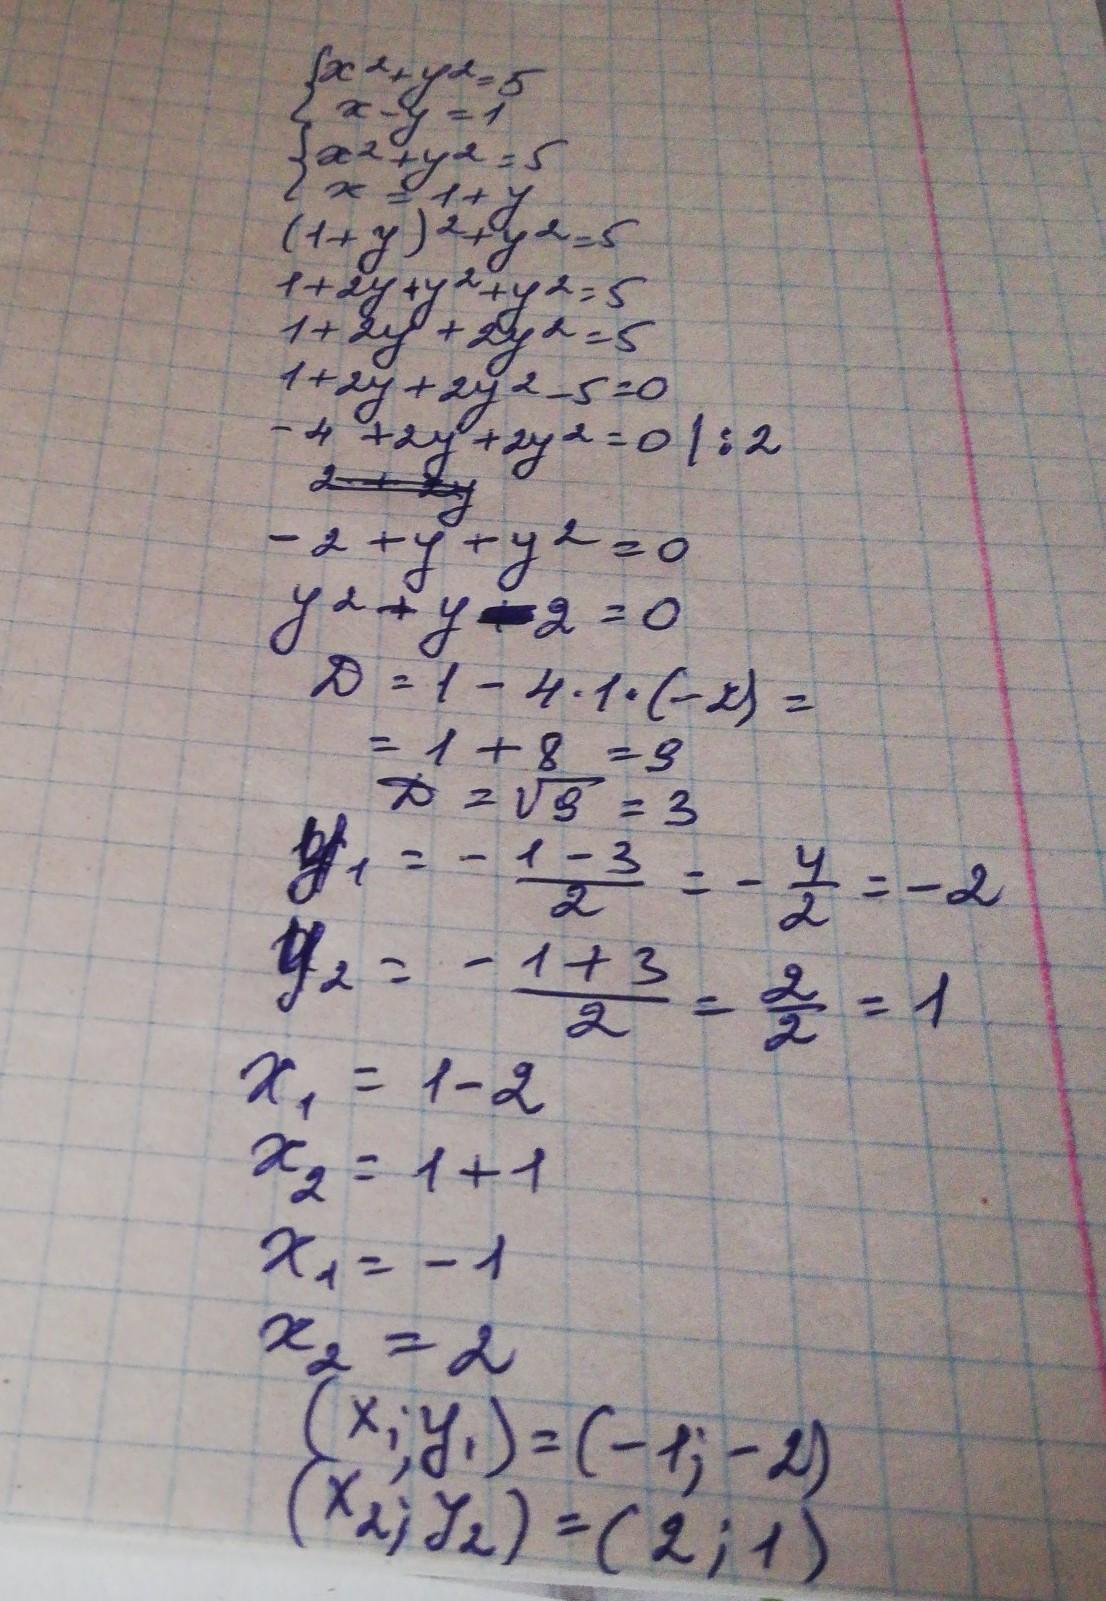 {x²+y²=5
x-y=1
{x²+y²=5
x=1+y
(1+y)²+y²=5
1+2y+y²+y²=5
1+2y+2y²=5
1+2y+2y²-5=0
-4+2y+2y²=0|:2
2+2y
-2+y+y²=0
y²+y-2=0
D=1-4·1·(-2)=
=1+8=9
D=√9=3
y₁=-(1-3)/2=-4/2=-2
y₂=-(1+3)/2=2/2=1
x₁=1-2
x₂=1+1
x₁=-1
x₂=2
(x₁;y₁)=(-1;-2)
(x₂;y₂)=(2;1)